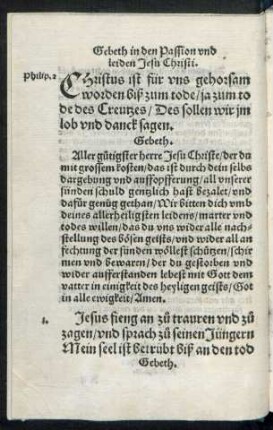 Gebeth in den Passion vnd
leiden Jesu Christi.
Philip. 2
CHristus ist für vns gehorsam
worden biß zum tode/ ja zum to
de des Creutzes/ Des sollen wir jm
lob vnd danck sagen.
Gebeth.
Aller gütigster herre Jesu Christe/ der du
mit grossem kosten/ das ist durch dein selbs
dargebung vnd auffopfferung/ all vnserer
sünden schuld gentzlich hast bezalet/ vnd
dafür genüg gethan/ Wir bitten dich vmb
deines allerheiligsten leidens/ marter vnd
todes willen/ das du vns wider alle nach
stellung des bösen geists/ vnd wider all an
fechtung der sünden wöllest schützen/ schir
men vnd bewaren/ der du gestorben vnd
wider aufferstanden lebest mit Gott dem
vatter in einigkeit des heyligen geists/ Got
in alle ewigkeit/ Amen.
1. Jesus fieng an zů trauren vnd zů
zagen/ vnd sprach zů seinen Jüngern
Mein seel ist betrubt biß an den tod
Gebeth.